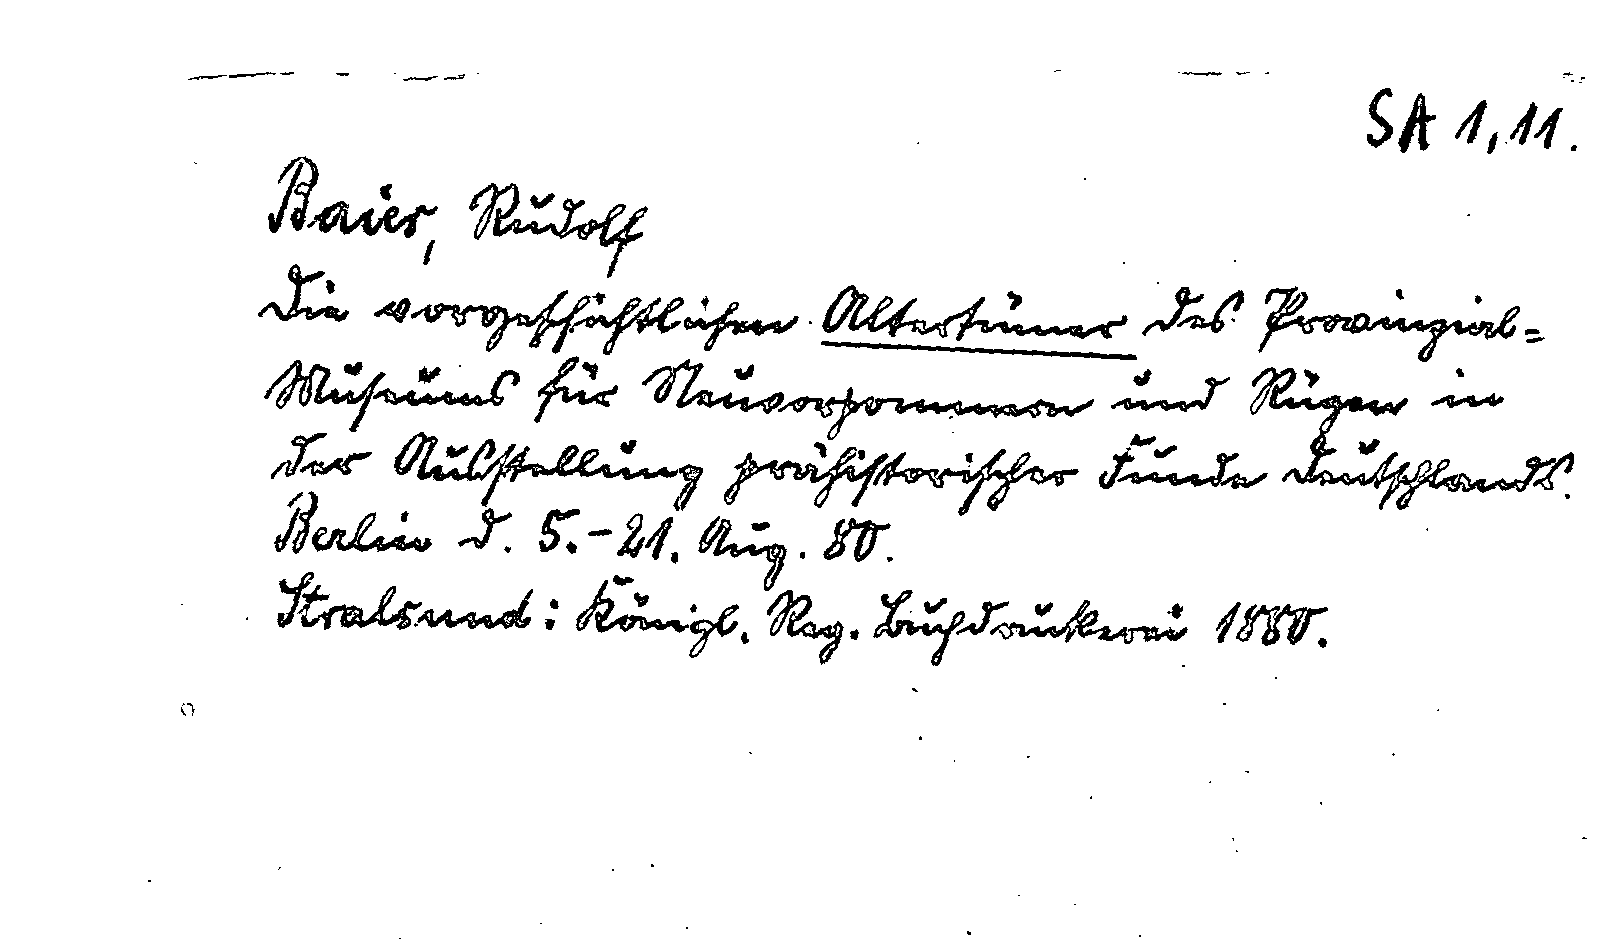 SA 1,11.
Baier, Rudolf
Die vorgeschichtlichen Altertümer des Provinzial-
Museums für Neuvorpommern und Rügen in
der Ausstellung prähistorischer Funde Deutschlands.
Berlin d. 5.-21. Aug. 80.
Stralsund: Königl. Reg. Buchdruckerei 1880.